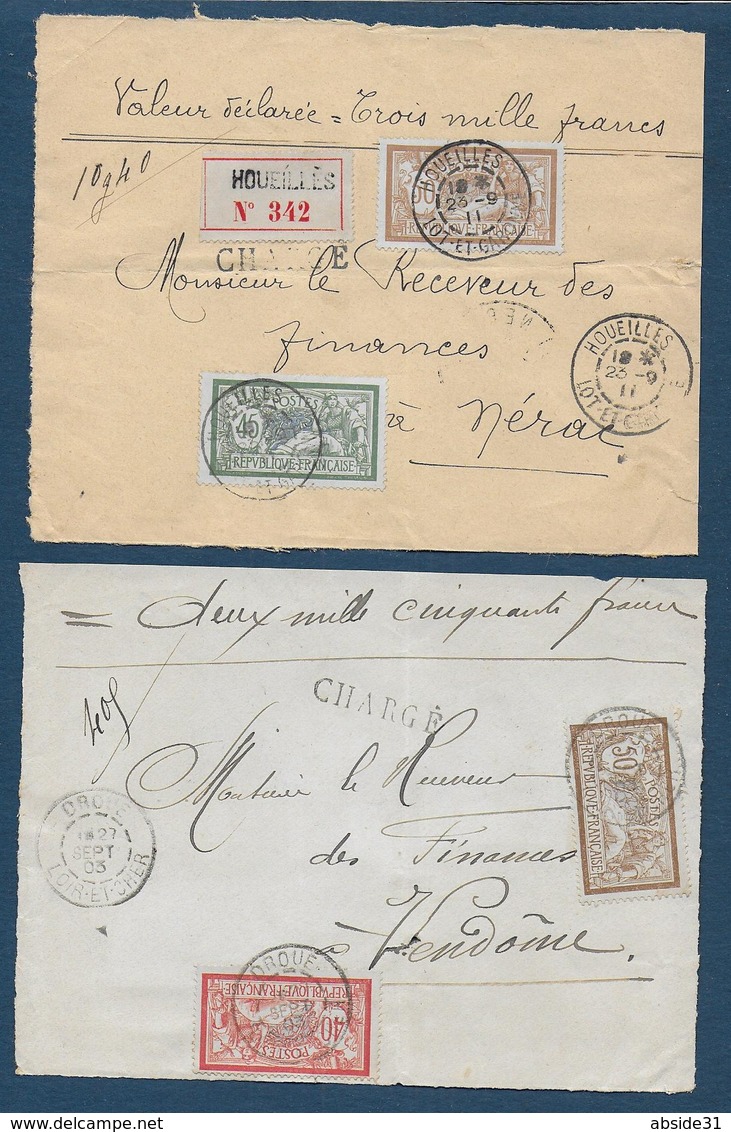 Valeur déclarée = Trois mille francs
10g40
HOUEILLÈS
Nº 342
50
REPVBLIQVE·FRANÇAISE
HOUEILLÈS
23 -9
11
LOT-ET-G
CHARGÉ
Monsieur le Receveur des
finances
à Nérac
NE
HOUEILLÈS
23 -9
11
LOT-ET-GAR
45
POSTES
REPVBLIQVE·FRANÇAISE
HOUEILLÈS
= deux mille cinquante francs
CHARGÉ
Monsieur le Receveur
des Finances
à Vendôme.
DROUÉ
27
SEPT
03
LOIR-ET-CHER
50
POSTES
REPVBLIQVE·FRANÇAISE
DROUÉ
REPVBLIQVE·FRANÇAISE
40
POSTES
DROUÉ
SEPT
abside31